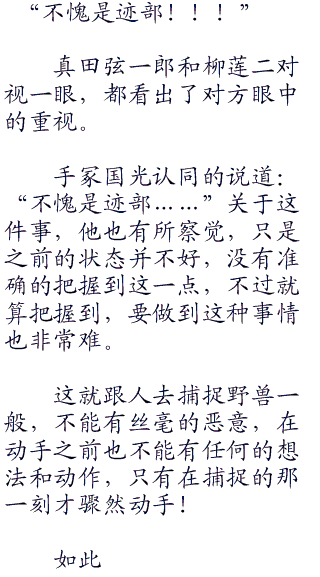 “不愧是迹部！！！”
真田弦一郎和柳莲二对
视一眼，都看出了对方眼中
的重视。
手冢国光认同的说道：
“不愧是迹部……”关于这
件事，他也有所察觉，只是
之前的状态并不好，没有准
确的把握到这一点，不过就
算把握到，要做到这种事情
也非常难。
这就跟人去捕捉野兽一
般，不能有丝毫的恶意，在
动手之前也不能有任何的想
法和动作，只有在捕捉的那
一刻才骤然动手！
如此